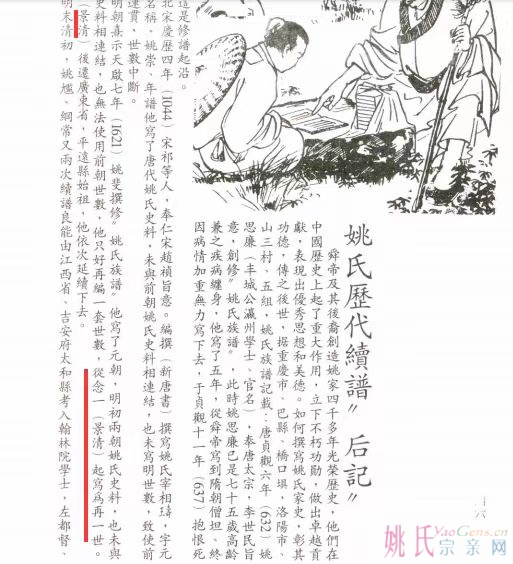 姚氏歷代續譜〝后記〞
舜帝及其後裔創造姚家四千多年光榮歷史，他們在
中國歷史上起了重大作用，立下不朽功勛，做出卓越貢
獻，表現出優秀思想和美德。如何撰寫姚氏家史，彰其
功德，傳之後世，据重慶市、巴縣、橋口埧，洛陽市、
山三村、五組，姚氏族譜記載：唐貞觀六年（632）姚
思廉（丰城公瀛州學士、官名），奉唐太宗，李世民旨
意，創修〝姚氏族譜〞，此時姚思廉已是七十五歲高齡
兼之疾病纏身，他寫了五年，從舜帝寫到隋朝僧坦、終
因病情加重無力寫下去，于貞觀十一年（637）抱恨死
這是修譜起沿。
北宋慶歷四年（1044）宋祁等人，奉仁宋趙楨旨意。編撰（新唐書）撰寫姚氏宰相璹，字元
名稱，姚崇、年譜他寫了唐代姚氏史料，未與前朝姚氏史料相連結，也未寫明世數，致使前
連貫，世數中斷。
明朝熹示天啟七年（1621）姚斐撰修〝姚氏族譜〞他寫了元朝，明初兩朝姚氏史料，也未與
史料相連結，也無法使用前朝世數，他只好再編一套世數，從念一（景清）起寫為再一世。
（景清）後遷廣東省，平遠縣始祖，他依次延續下去。
明末清初，姚尷、綱常又兩次續譜良能由江西省、吉安府太和縣考入翰林院學士，左都督、
姚氏YaoGens.cn
宗亲网